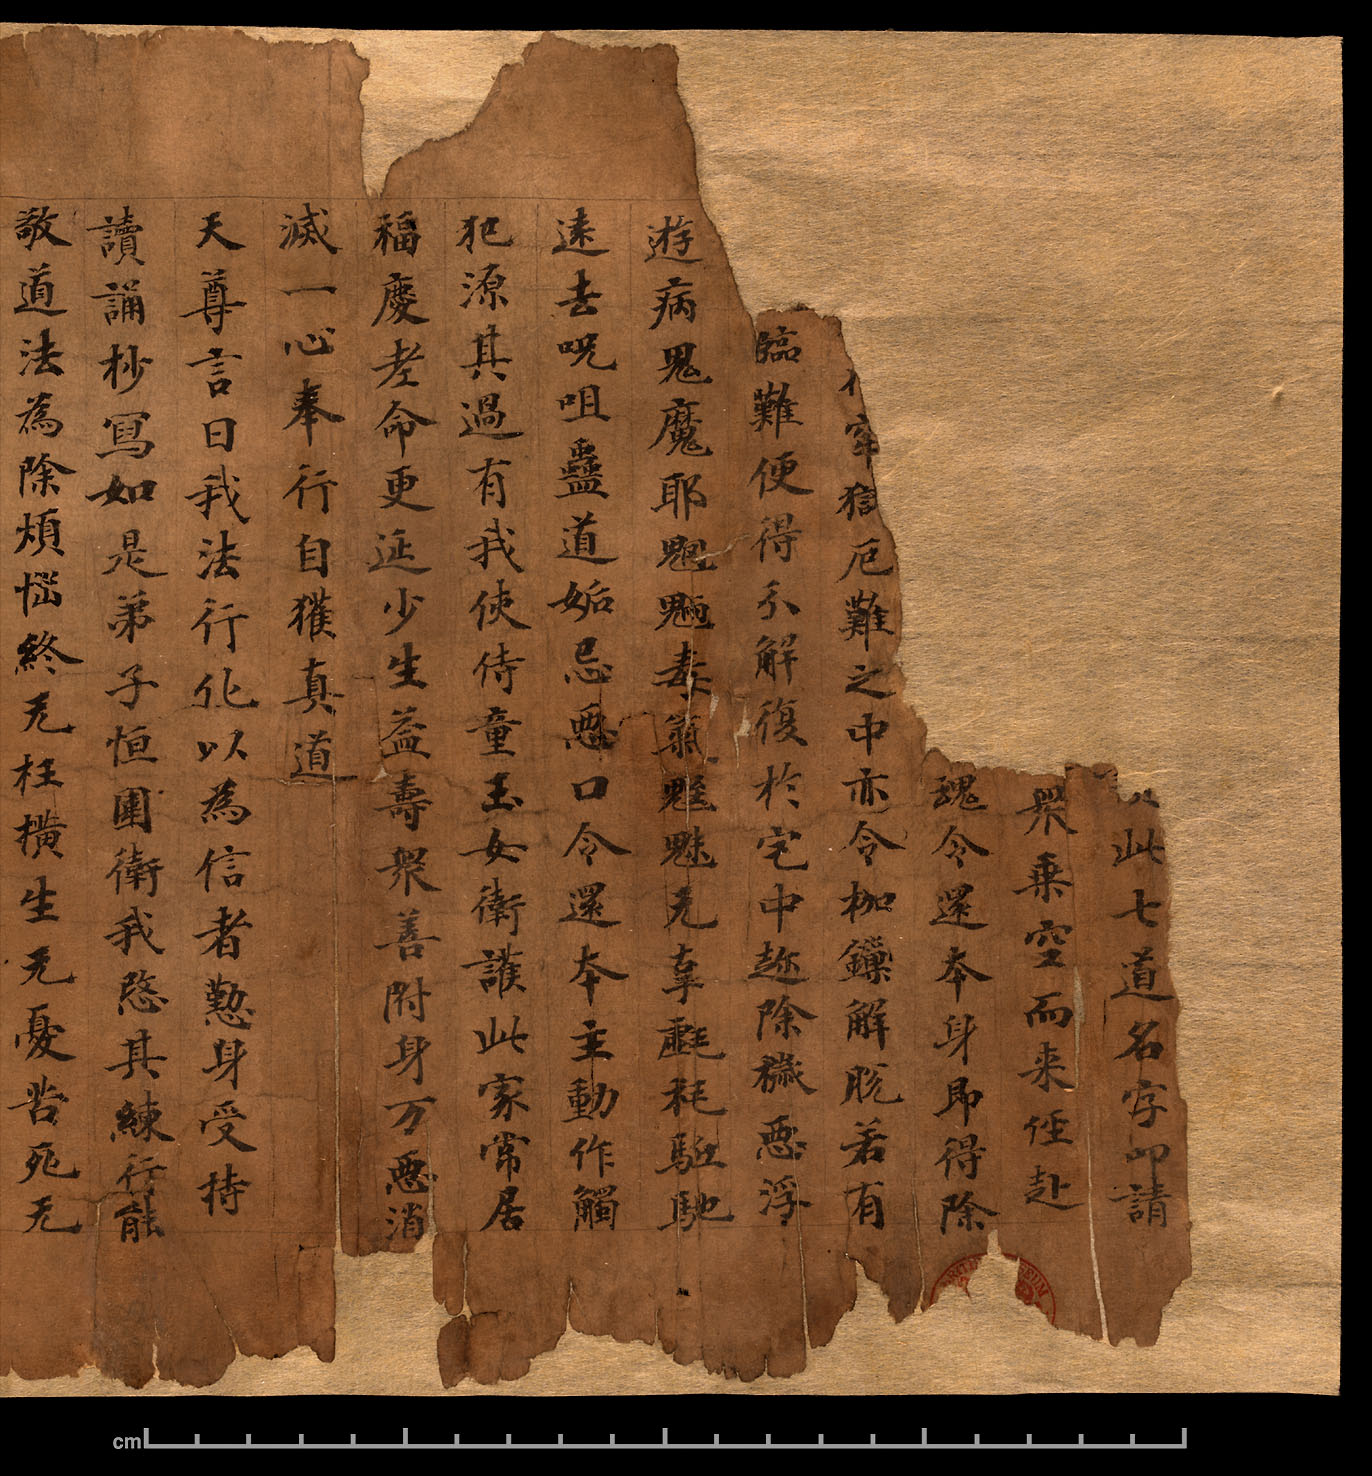 此七道名字即請
衆乗空而来侄赴
魂令還本身即得除
牢獄厄難之中亦令枷鏁解脫若有
臨難便得尒解復於宅中趂除穢惡浮
遊病鬼魔耶魍魎毒氣魁魅无辜氀秏駈馳
遠去呪咀蠱道妬忌惡口令還本主動作觸
犯源其過有我使侍童玉女衛護此家常居
福慶孝命更延少生益壽衆善附身万惡消
滅一心奉行自獲真道
天尊言曰我法行化以為信者懃身受持
讀誦杪寫如是弟子恒圍衛我愍其練行能
敬道法為除煩惱終无枉橫生无憂苦死无